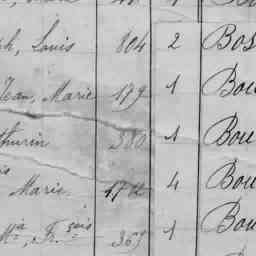 ph, Louis 804 2 Bos
Jean, Marie 179 1 Bou
thurin 380 1 Bou
Marie 4 Bou
Mia, Fr.çois 365 1 Bou